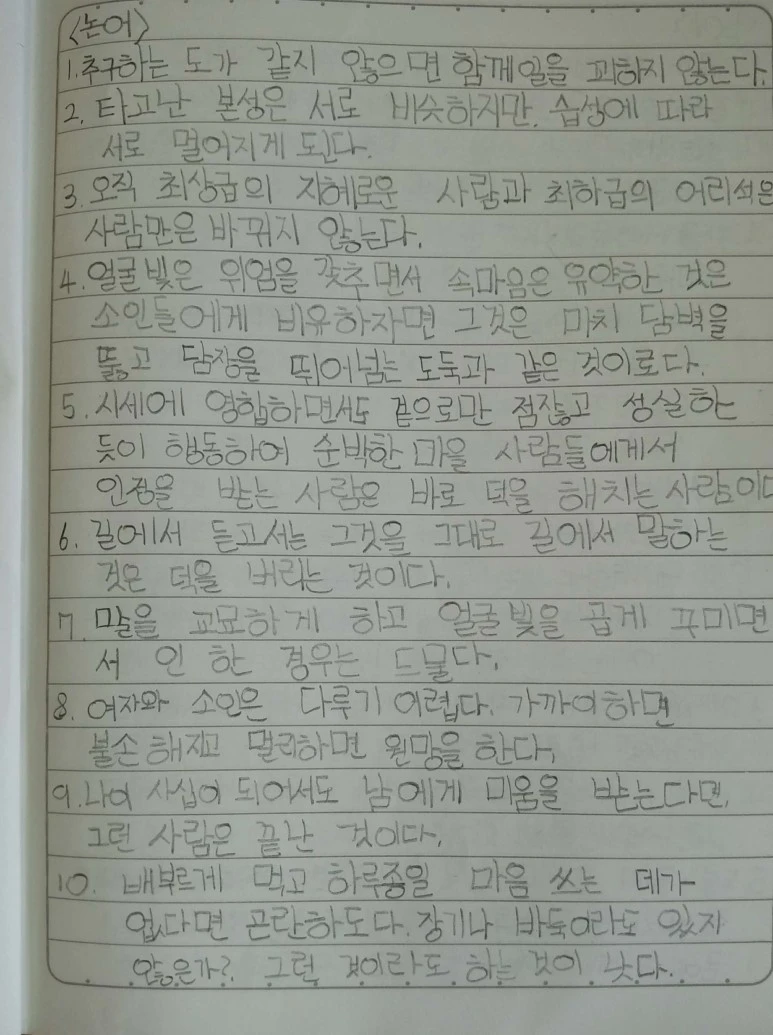 <논어>
1. 추구하는 도가 같지 않으면 함께일을 꾀하지 않는다.
2. 타고난 본성은 서로 비슷하지만, 습성에 따라
서로 멀어지게 된다.
3. 오직 최상급의 지혜로운 사람과 최하급의 어리석은
사람만은 바뀌지 않는다.
4. 얼굴빛은 위엄을 갖추면서 속마음은 유약한 것은
소인들에게 비유하자면 그것은 마치 담벽을
뚫고 담장을 뛰어넘는 도둑과 같은 것이로다.
5. 시세에 영합하면서도 겉으로만 점잖고 성실한
듯이 행동하여 순박한 마을 사람들에게서
인정을 받는 사람은 바로 덕을 해치는 사람이다
6. 길에서 듣고서는 그것을 그대로 길에서 말하는
것은 덕을 버리는 것이다.
7. 말을 교묘하게 하고 얼굴빛을 곱게 꾸미면
서 인 한 경우는 드물다.
8. 여자와 소인은 다루기 어렵다. 가까이하면
불손 해지고 멀리하면 원망을 한다.
9. 나이 사십이 되어서도 남에게 미움을 받는다면,
그런 사람은 끝난 것이다.
10. 배부르게 먹고 하루종일 마음 쓰는 데가
없다면 곤란하도다. 장기나 바둑이라도 있지
않은가? 그런 것이라도 하는 것이 낫다.